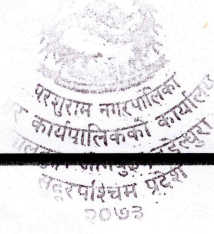 परशुराम नगरपालिका
कार्यपालिकाको कार्यालय
सुदूरपश्चिम प्रदेश
२०७३